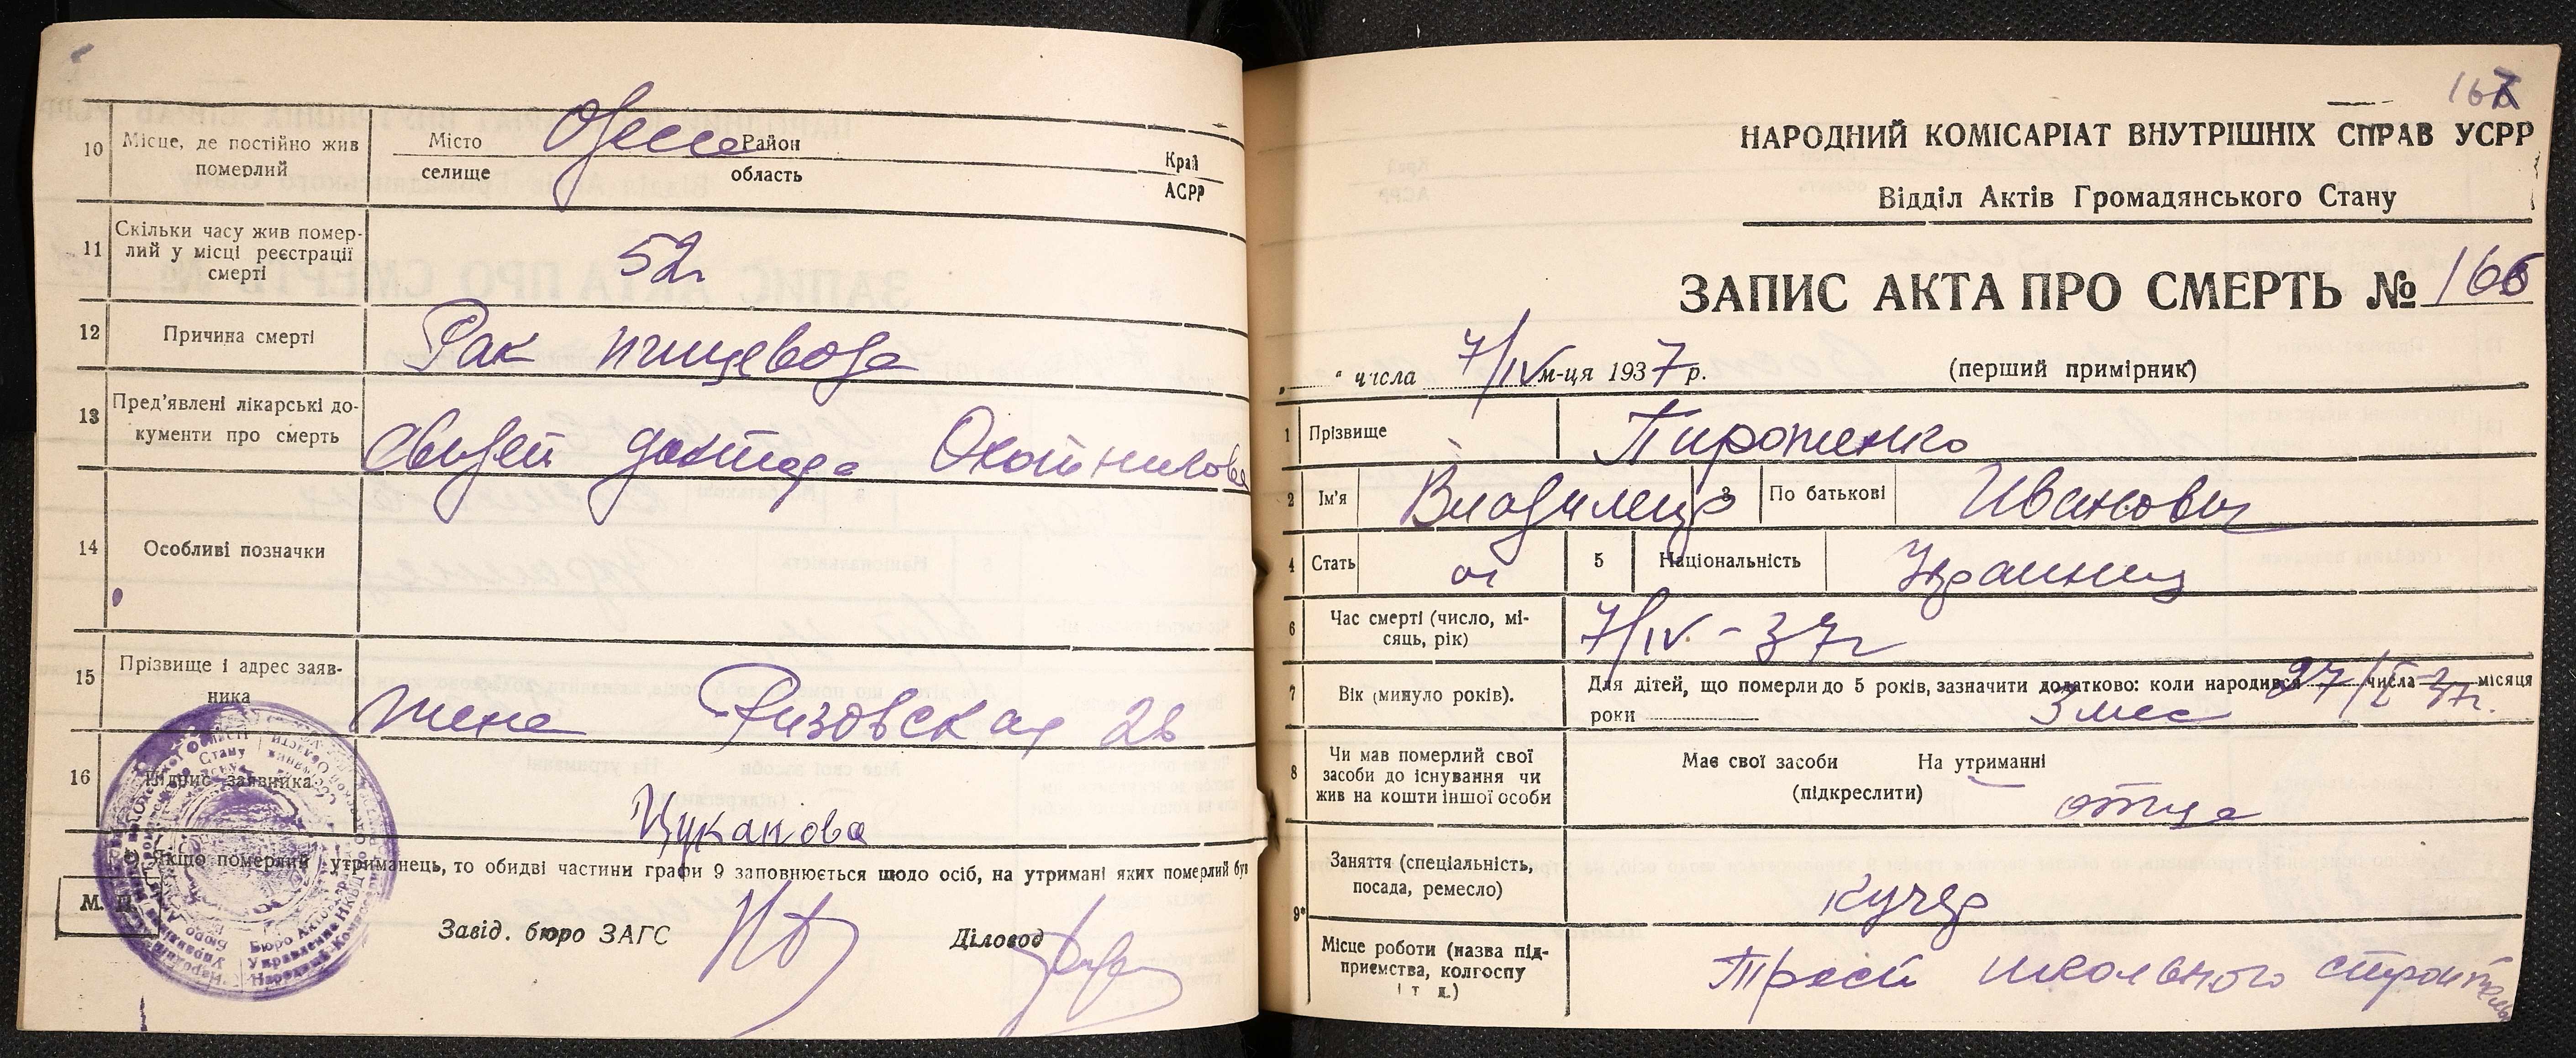 10 Місце, де постійно жив померлий
Місто Одесса Район Край
селище область АСРР
11 Скільки часу жив помер-
лий у місці реєстрації
смерті
52г
12 Причина смерті Рак пищевода
13 Пред'явлені лікарські до-
кументи про смерть
свидет доктора Охотникова
14 Особливі позначки
15 Прізвище і адрес заяв-
ника
жена Ризовская 26
16 Підпис заявника
Цуканова
Якщо померлий утриманець, то обидві частини графи 9 заповнюється щодо осіб, на утримані яких померлий був
М. П.
Завід. бюро ЗАГС Діловод
НАРОДНИЙ КОМІСАРІАТ ВНУТРІШНІХ СПРАВ УСРР
Відділ Актів Громадянського Стану
ЗАПИС АКТА ПРО СМЕРТЬ № 166
" " числа 7/IV м-ця 1937 р. (перший примірник)
1 Прізвище Пироженко
2 Ім'я Владимир 3 По батькові Иванович
4 Стать м 5 Національність Украинец
6 Час смерті (число, мі-
сяць, рік)
7/IV - 37г
7 Вік (минуло років).
Для дітей, що померли до 5 років, зазначити додатково: коли народився 27/I 37г. числа місяця
роки 3 мес
8 Чи мав померлий свої
засоби до існування чи
жив на кошти іншої особи
Має свої засоби На утриманні
(підкреслити) отца
9* Заняття (спеціальність,
посада, ремесло)
кучер
Місце роботи (назва під-
приємства, колгоспу
і т д.)
Трест школьного строитель